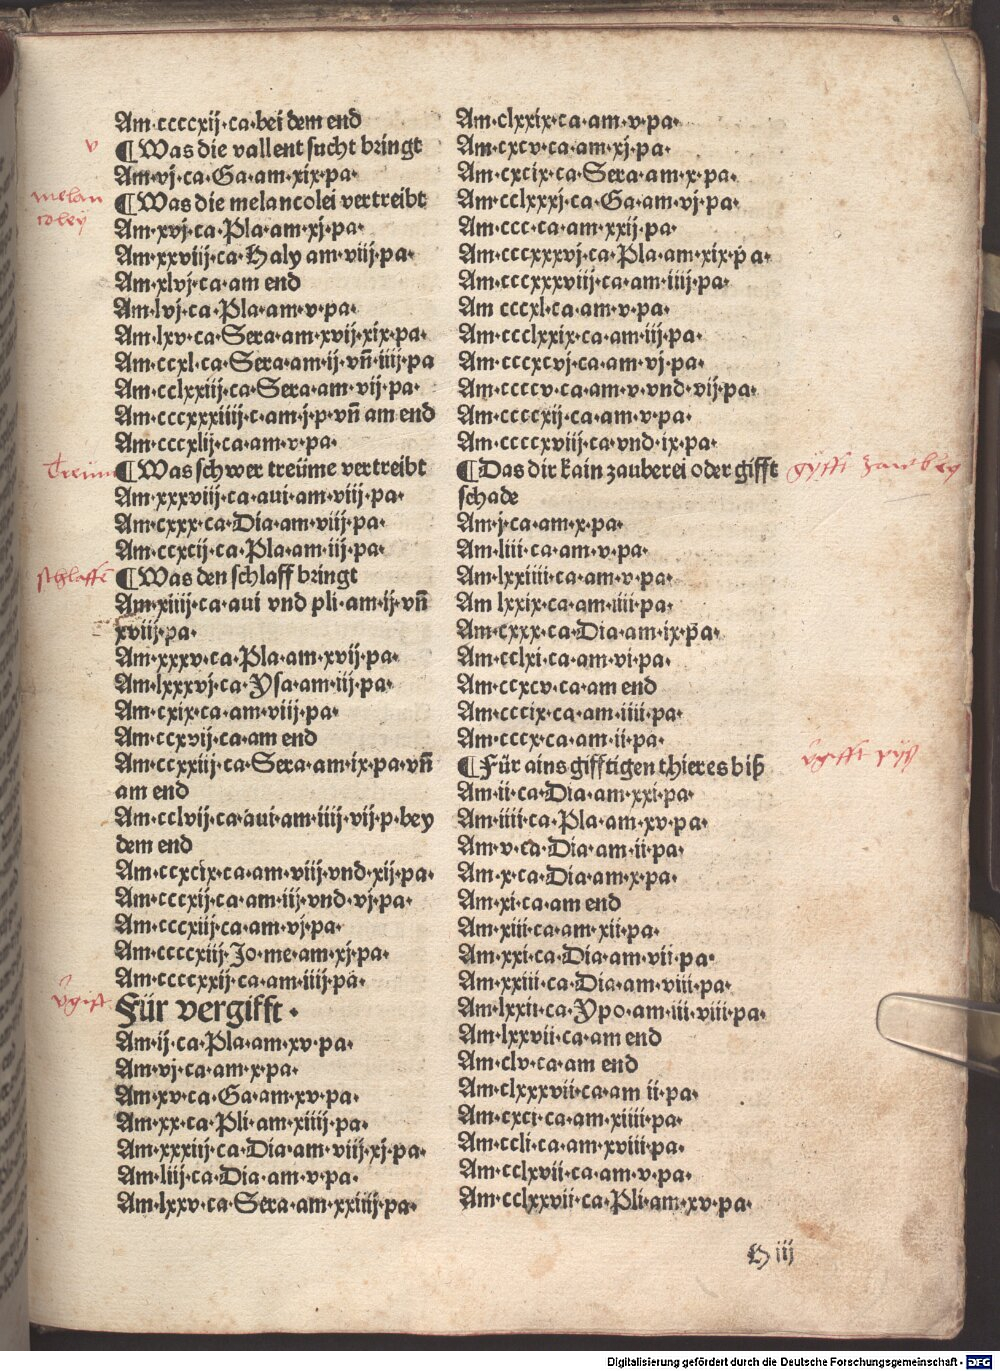 Am·ccccxij·ca·bei dem end
v
¶Was die vallent sucht bringt
Am·vj·ca·Ga·am·xix·pa·
melan
coley
¶Was die melancolei vertreibt
Am·xvj·ca·Pla·am·xj·pa·
Am·xxviij·ca·Haly am·viij·pa·
Am·xlvj·ca·am end
Am·lvj·ca·Pla·am·v·pa·
Am·lxv·ca·Sera·am·xvij·xix·pa·
Am·ccxl·ca·Sera·am·ij·vñ·iiij·pa
Am·cclxxiij·ca·Sera·am·vij·pa·
Am·cccxxxiiij·c·am·j·p·vñ am end
Am·cccxlij·ca·am·v·pa·
Treüm
¶Was schwer treüme vertreibt
Am·xxxviij·ca·aui·am·viij·pa·
Am·cxxx·ca·Dia·am·viij·pa·
Am·ccxcij·ca·Pla·am·iij·pa·
schlaffē
¶Was den schlaff bringt
Am·xiiij·ca·aui vnd pli·am·ij·vñ
xviij·pa·
Am·xxxv·ca·Pla·am·xvij·pa·
Am·lxxxvj·ca·Ysa·am·iij·pa·
Am·cxix·ca·am·viij·pa·
Am·ccxvij·ca·am end
Am·ccxxiij·ca·Sera·am·ix·pa·vñ
am end
Am·cclvij·ca·aui·am·iiij·vij·p·bey
dem end
Am·ccxcix·ca·am·viij·vnd·xij·pa·
Am·cccxij·ca·am·iij·vnd·vj·pa·
Am·cccxiij·ca·am·vj·pa·
Am·ccccxiij·Jo·me·am·xj·pa·
Am·ccccxxij·ca·am·iiij·pa·
v̄gift
Für vergifft·
Am·ij·ca·Pla·am·xv·pa·
Am·vj·ca·am·x·pa·
Am·xv·ca·Ga·am·xv·pa·
Am·xx·ca·Pli·am·xiiij·pa·
Am·xxxiij·ca·Dia·am·viij·xj·pa·
Am·liij·ca·Dia·am·v·pa·
Am·lxxv·ca·Sera·am·xxiiij·pa·
Am·clxxix·ca·am·v·pa·
Am·cxcv·ca·am·xj·pa·
Am·cxcix·ca·Sera·am·x·pa·
Am·cclxxxj·ca·Ga·am·vj·pa·
Am·ccc·ca·am·xxij·pa·
Am·cccxxxvj·ca·Pla·am·xix·pa·
Am·cccxxxviij·ca·am·iiij·pa·
Am cccxl·ca·am·v·pa·
Am·ccclxxix·ca·am·iij·pa·
Am·cccxcvj·ca·am·vj·pa·
Am·ccccv·ca·am·v·vnd·vij·pa·
Am·ccccxij·ca·am·v·pa·
Am·ccccxviij·ca·vnd·ix·pa·
¶Das dir kain zauberei oder gifft
schade
Am·j·ca·am·x·pa·
Am·liii·ca·am·v·pa·
Am·lxxiiii·ca·am·v·pa·
Am lxxix·ca·am·iiii·pa·
Am·cxxx·ca·Dia·am·ix·pa·
Am·cclxi·ca·am·vi·pa·
Am·ccxcv·ca·am end
Am·cccix·ca·am·iiii·pa·
Am·cccx·ca·am·ii·pa·
¶Für ains gifftigen thieres biß
Am·ii·ca·Dia·am·xxi·pa·
Am·iiii·ca·Pla·am·xv·pa·
Am·v·ca·Dia·am·ii·pa·
Am·x·ca·Dia·am·x·pa·
Am·xi·ca·am end
Am·xiii·ca·am·xii·pa·
Am·xxi·ca·Dia·am·vii·pa·
Am·xxiii·ca·Dia·am·viii·pa·
Am·lxxii·ca·Ypo·am·iii·viii·pa·
Am·lxxvii·ca·am end
Am·clv·ca·am end
Am·clxxxvii·ca·am ii·pa·
Am·cxci·ca·am·xiiii·pa·
Am·ccli·ca·am·xviii·pa·
Am·cclxvii·ca·am·v·pa·
Am·cclxxvii·ca·Pli·am·xv·pa·
H iij
Digitalisierung gefördert durch die Deutsche Forschungsgemeinschaft - DFG